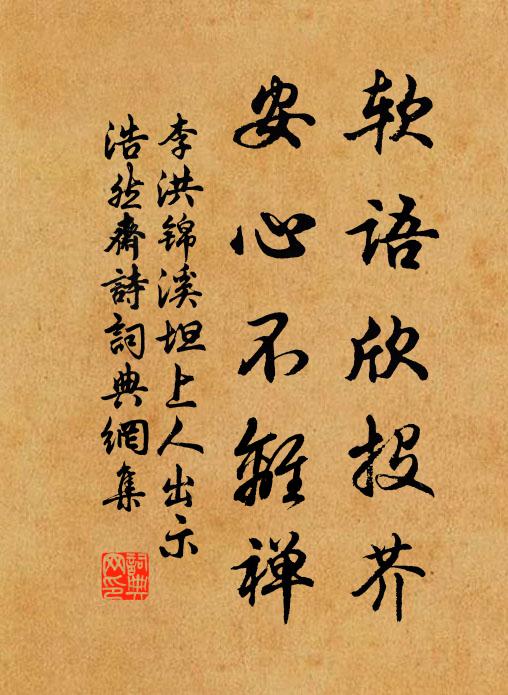 软语欣投芥
安心不離禅
李洪锦溪坦上人出示
浩然齋詩詞典網集
詞典网印